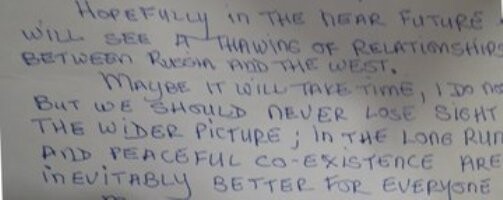 Hopefully in the near future
will see a thawing of relationships
between Russia and the West.
Maybe it will take time, I do no
But we should never lose sight
the wider picture; in the long run
and peaceful co-existence are
inevitably better for everyone